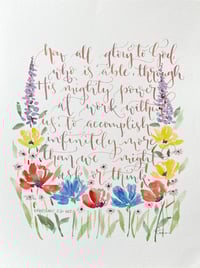 Now all glory to God,
who is able, through
His mighty power
at work within
us, to accomplish
infinitely more
than we might
ask or think